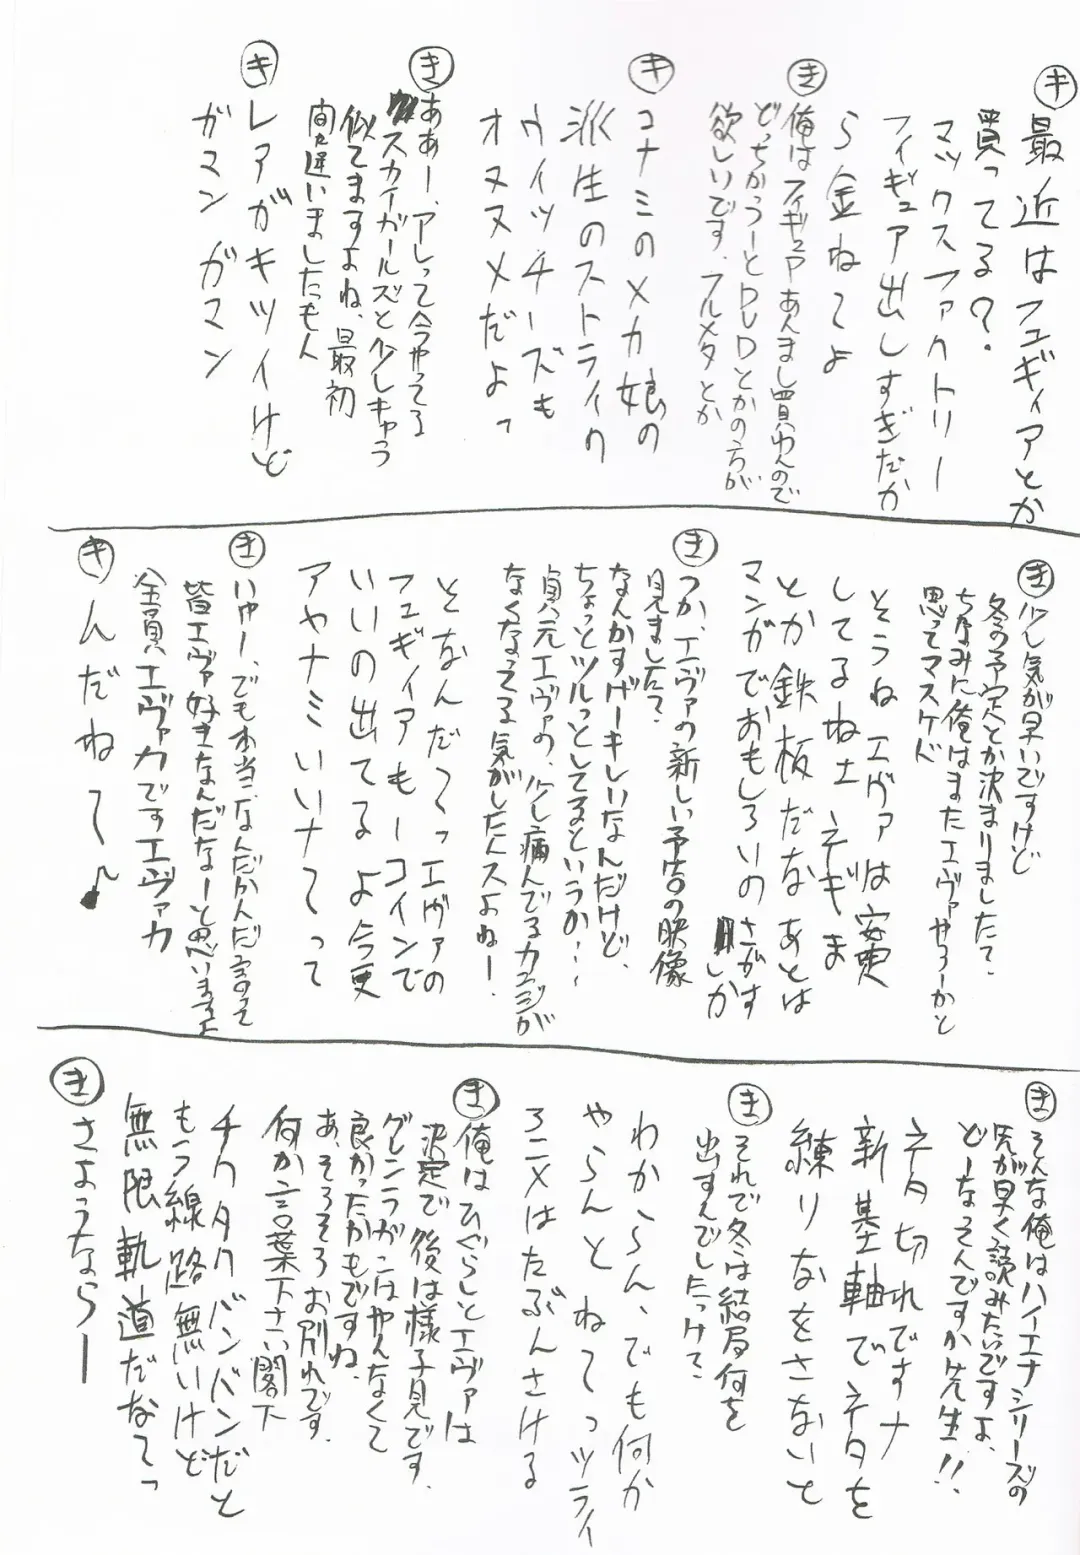 キ 最近はフュギィアとか
買ってる?
マックスファクトリー
フィギュア出しすぎだか
ら金ねてよ
き 俺はフィギュアあんまし買わんので
どっちかつーとDVDとかの方が
欲しいです、フルメタとか
キ コナミのメカ娘の
派生のストライク
ウィッチーズも
オヌヌメだよっ
き ああー、アレって今やってる
スカイガールズと少しキャラ
似てますよね、最初
間違いましたもん
キ レアがキツイけど
ガマン ガマン
き 少し気が早いですけど
冬の予定とか決まりましたて?
ちなみに俺はまたエヴァやろーかと
思ってマスケド
そうね エヴァは安定
してるね土 ネギま
とか鉄板だな あとは
マンガでおもしろいの さがす
しか
き つか、エヴァの新しい予告の映像
見ました?
なんかすげーキレイなんだけど、
ちょっとツルっとしてるというか・・・
貞元エヴァの、少し病んでるカンジが
なくなってる気がしたんスよねー。
そなんだ〜っエヴァの
フュギィアもーコインで
いいの出てるよ今更
アヤナミいいナて〜って
き いやー、でも本当、なんだかんだ言って
皆エヴァ好きなんだなーと思いますよ
全員エヴァカですエヴァカ
キ んだねて〜♪
き そんな俺はハイエナシリーズの
尻が早く読みたいですよ、
どーなってんですか先生!!
ネタ切れですナ
新基軸でネタを
練りなをさないと
き それで冬は結局何を
出すんでしたっけ?
わからん、でも何か
やらんとねてっツライ
ろニメはたぶんさける
き 俺はひぐらしとエヴァは
決定で後は様子見です。
グレンラガンはやんなくて
良かったかもですね。
あ、そろそろお別れです。
何か言葉下さい閣下
チクタクバンバンだと
もう線路無いけど
無限軌道だなてっ
き さようならー